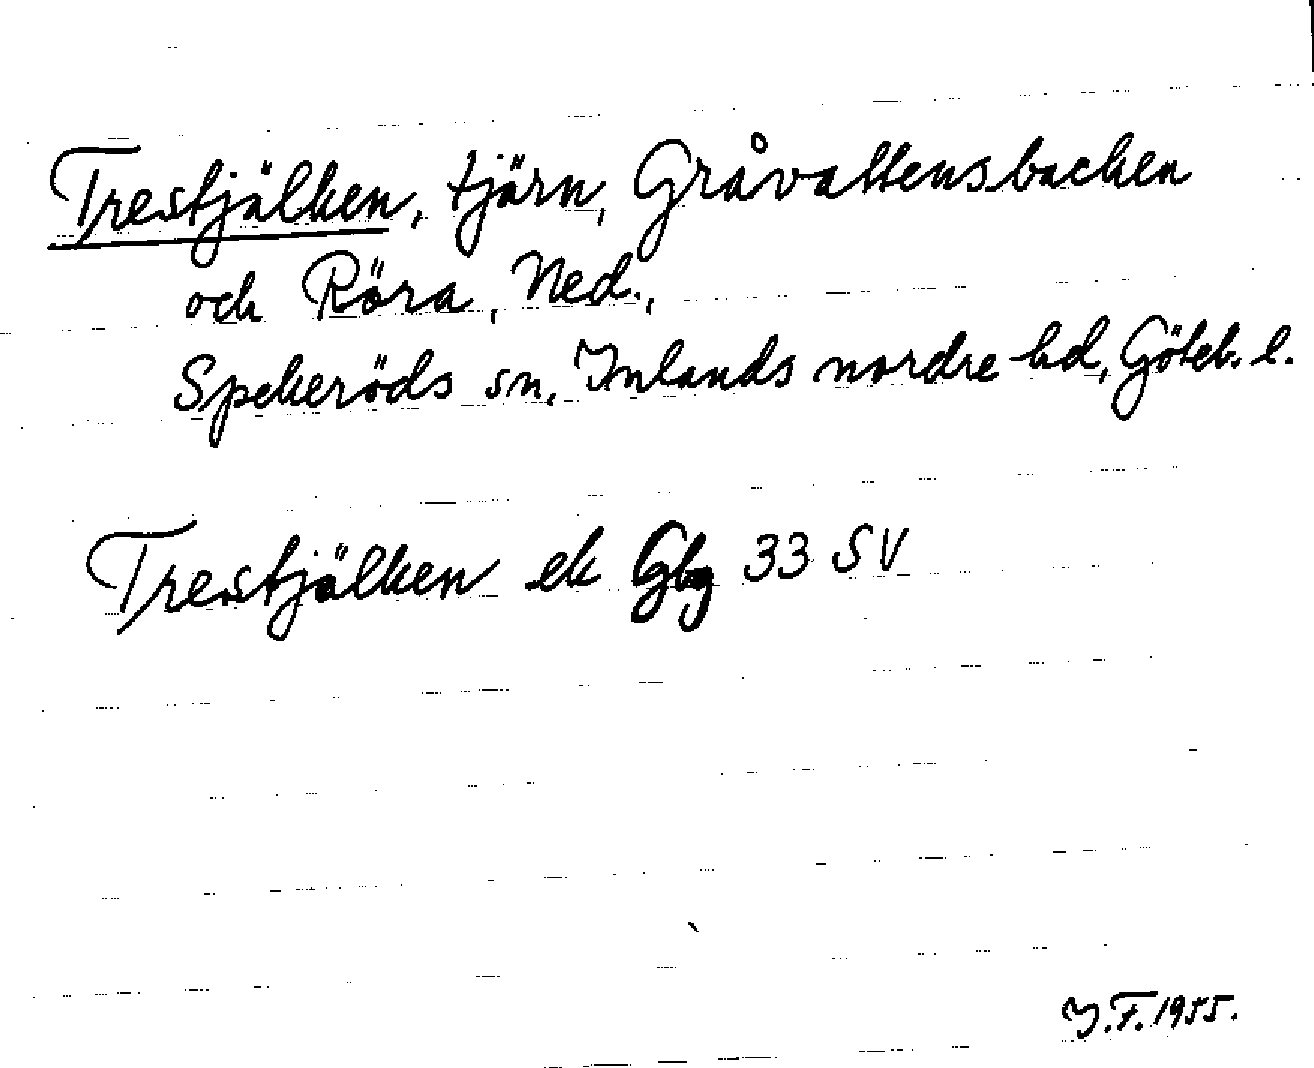 Trestjälken, tjärn, Gråvattensbacken
och Röra, Ned.,
Spekeröds sn, Inlands nordre hd, Göteb. l.
Trestjälken ek Gbg 33 SV
I.F. 1955.